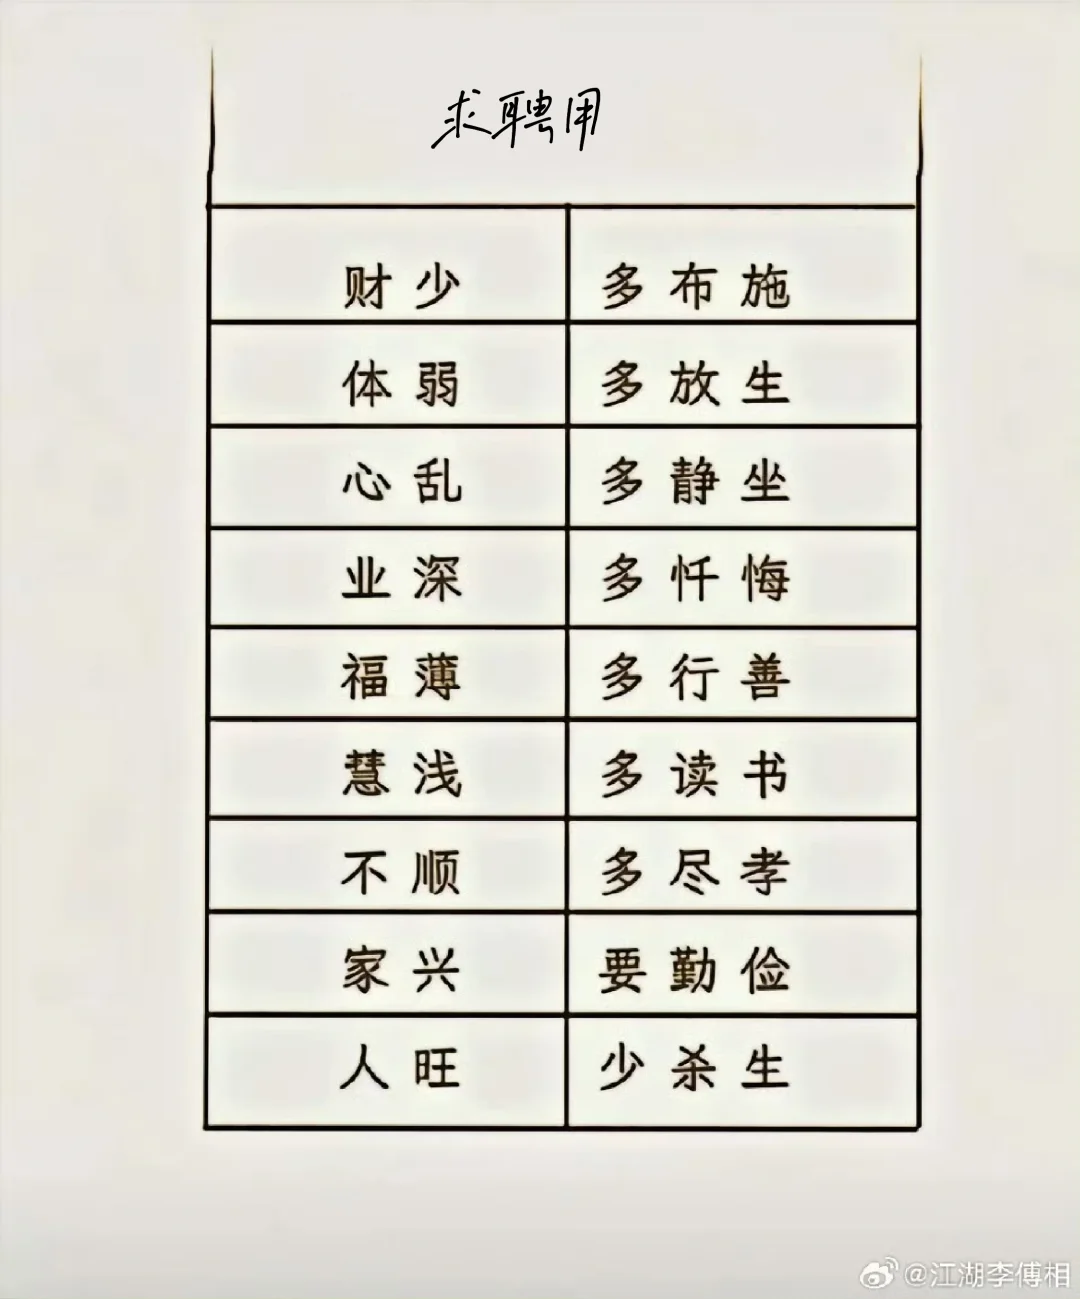 求聘用
财少 多布施
体弱 多放生
心乱 多静坐
业深 多忏悔
福薄 多行善
慧浅 多读书
不顺 多尽孝
家兴 要勤俭
人旺 少杀生
@江湖李傅相